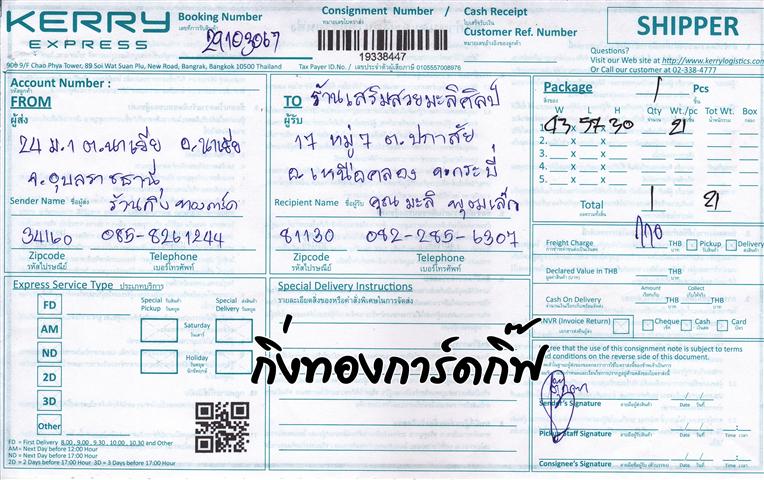 KERRY EXPRESS
Booking Number
เลขที่การรับสินค้า
29103067
Consignment Number / Cash Receipt
หมายเลขใบตราส่ง
ใบเสร็จรับเงิน
19338447
Customer Ref. Number
หมายเลขอ้างอิงของลูกค้า
SHIPPER
Questions?
Visit our Web site at http://www.kerrylogistics.com
Or Call our customer at 02-338-4777
900 9/F Chao Phya Tower, 89 Soi Wat Suan Plu, New Road, Bangrak, Bangkok 10500 Thailand
Tax Payer ID.No. / เลขประจำตัวผู้เสียภาษี 0105557008976
Account Number :
รหัสลูกค้า
FROM
ผู้ส่ง
24 ม.1 ต.นาเยีย อ.นาเยีย
จ.อุบลราชธานี
Sender Name ชื่อผู้ส่ง ร้านกิ่งทองการ์ด
34160 085-8261244
Zipcode Telephone
รหัสไปรษณีย์ เบอร์โทรศัพท์
TO ร้านเสริมสวยมะลิศิลป์
ผู้รับ
17 หมู่ 7 ต.ปกาสัย
อ.เหนือคลอง จ.กระบี่
Recipient Name ชื่อผู้รับ คุณมะลิ
81130 082-285-6307
Zipcode Telephone
รหัสไปรษณีย์ เบอร์โทรศัพท์
Package 1 Pcs
สิ่งของ ชิ้น
W L H Qty Wt./pc Tot Wt. Box
1. 43 x 57 x 30 21
2. x x
3. x x
4. x x
5. x x
Total 1 21
Freight Charge 770 THB Pickup Delivery
Declared Value in THB THB
Amount Collect
Cash On Delivery THB
INVR (Invoice Return) Cheque Cash Card
I agree that the use of this consignment note is subject to terms
and conditions on the reverse side of this document.
Sender's Signature Date วันที่
Pickup Staff Signature Date วันที่ Time เวลา
Consignee's Signature Date วันที่ Time เวลา
Express Service Type ประเภทบริการ
FD
AM
ND
2D
3D
Other
Special Pickup
Special Delivery
Saturday
วันเสาร์
Holiday
วันหยุด
Special Delivery Instructions
รายละเอียดสิ่งของหรือคำสั่งพิเศษในการจัดส่ง
กิ่งทองการ์ดกิ๊ฟ
FD = First Delivery 8.00, 9.00, 9.30, 10.00, 10.30 and Other
AM = Next Day before 12:00 Hour
ND = Next Day before 17:00 Hour
2D = 2 Days before 17:00 Hour 3D = 3 Days before 17:00 Hour